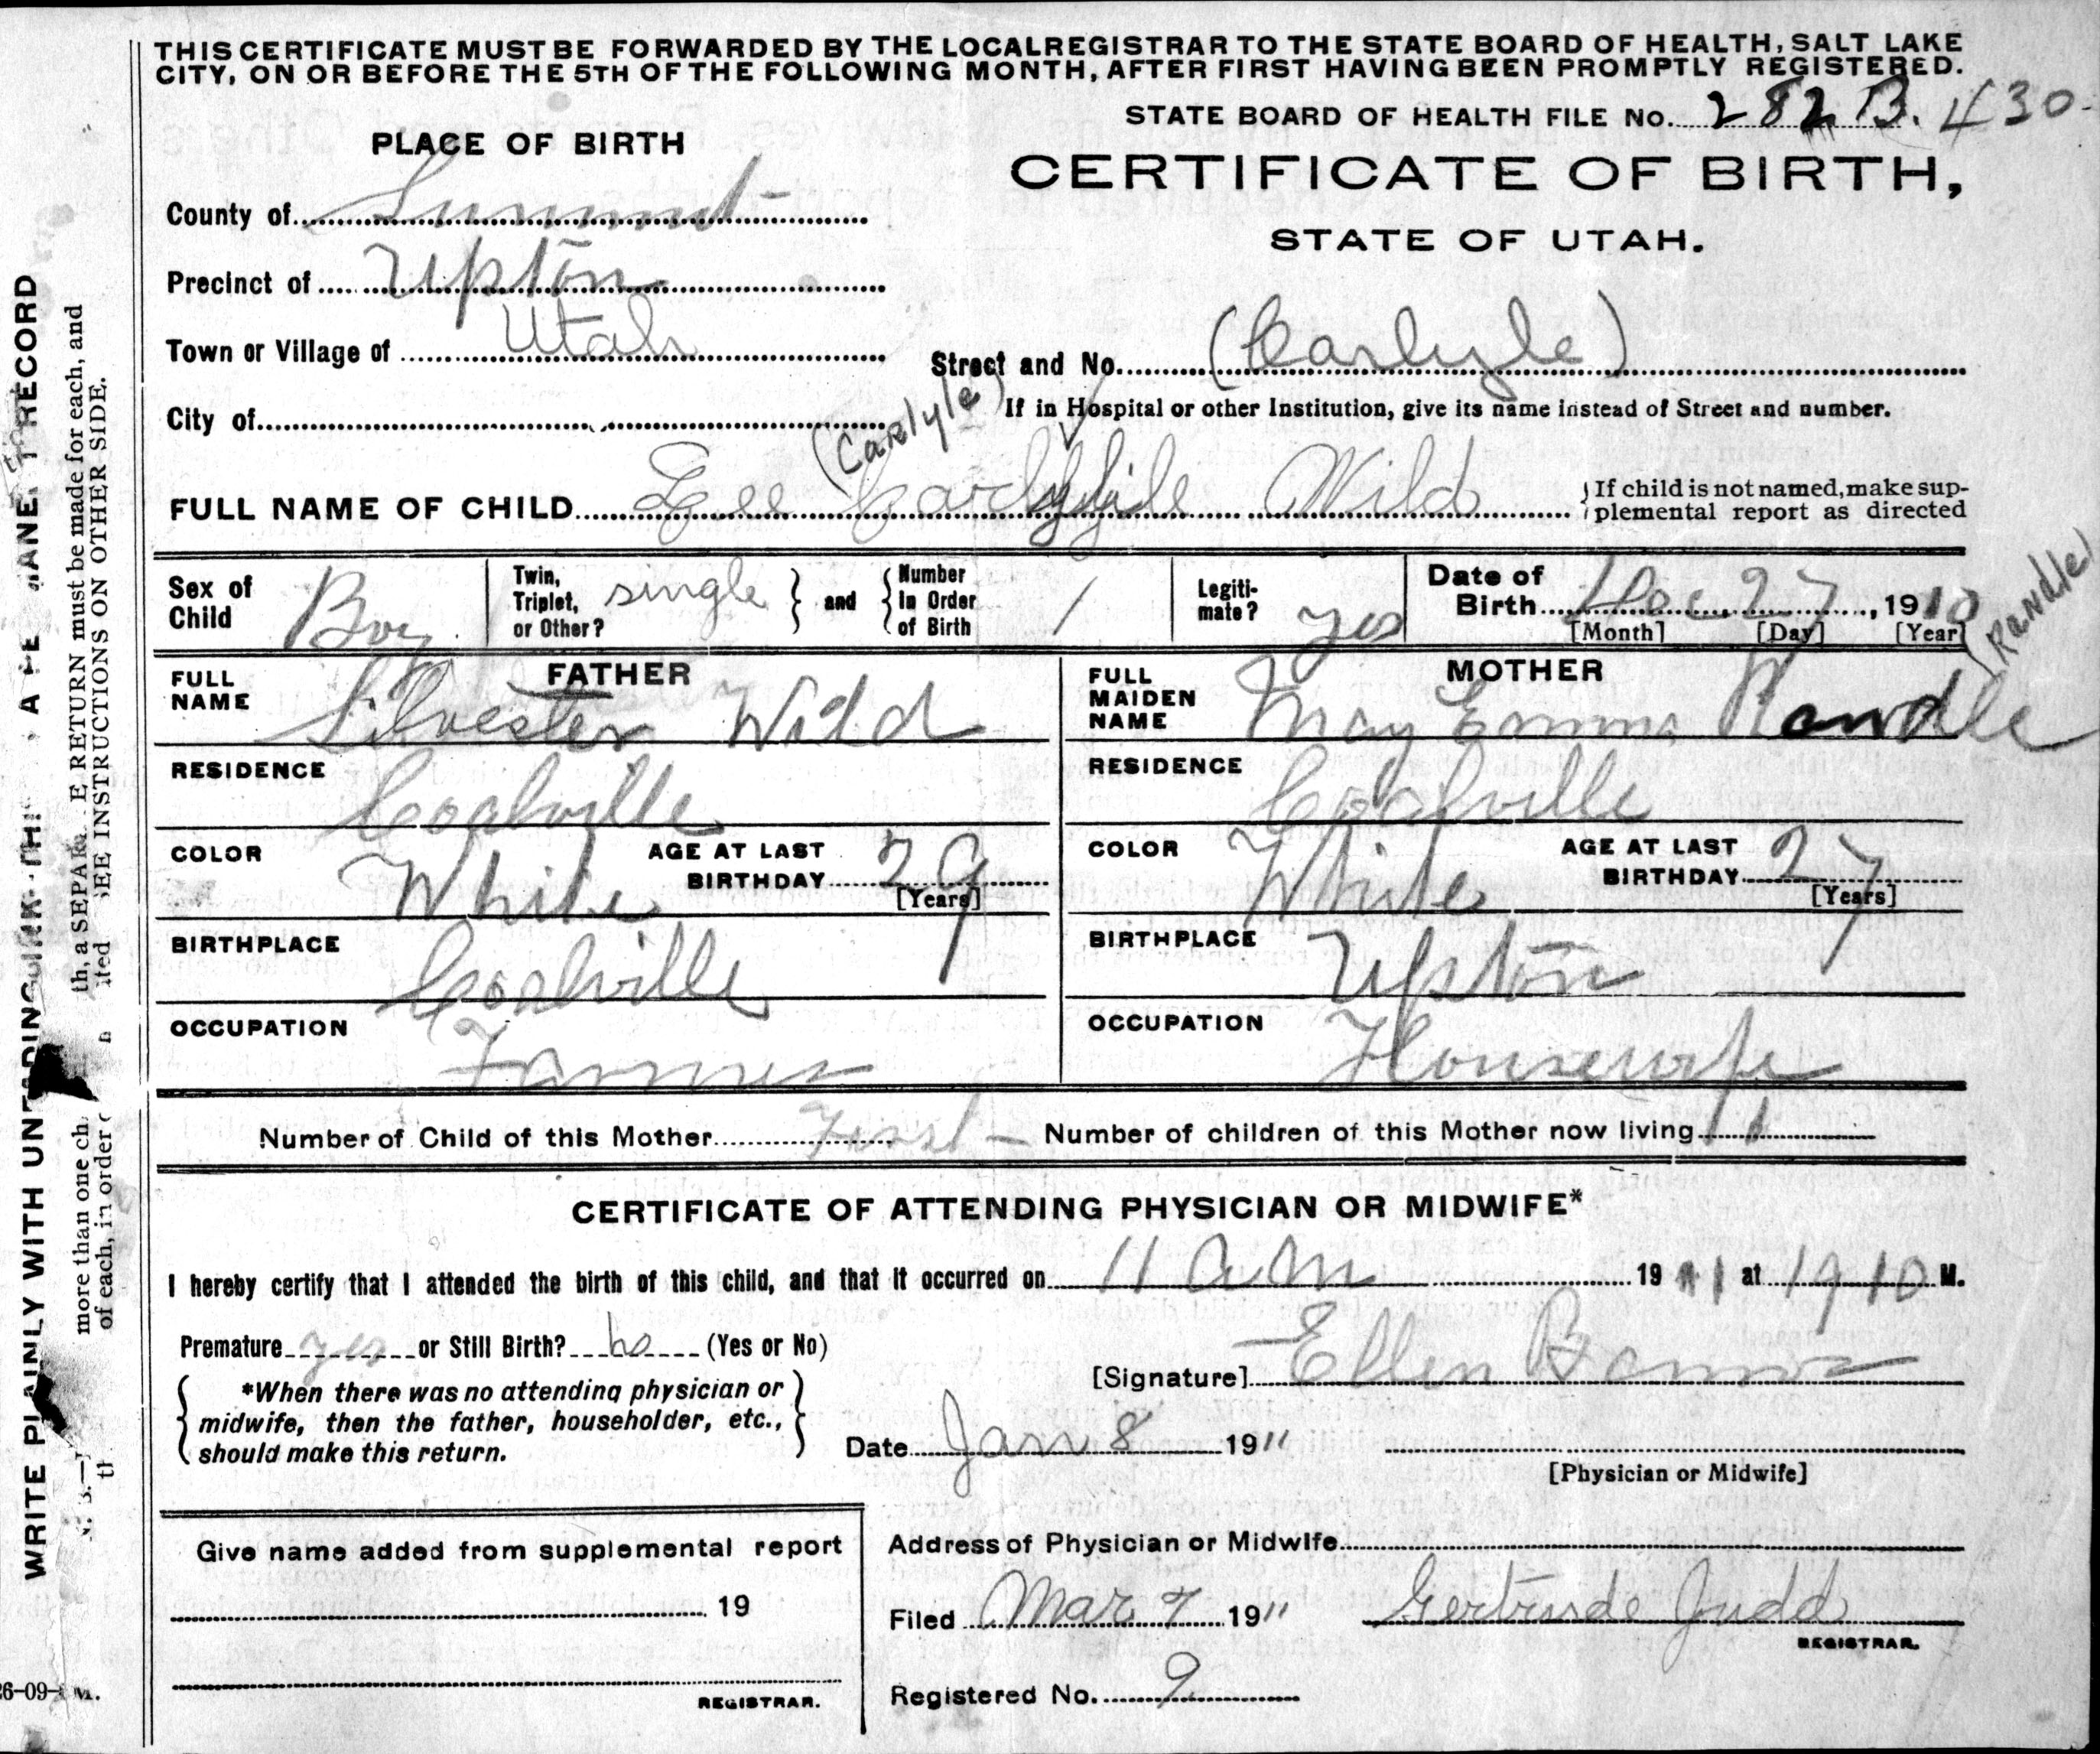 THIS CERTIFICATE MUST BE FORWARDED BY THE LOCAL REGISTRAR TO THE STATE BOARD OF HEALTH, SALT LAKE
CITY, ON OR BEFORE THE 5TH OF THE FOLLOWING MONTH, AFTER FIRST HAVING BEEN PROMPTLY REGISTERED.
STATE BOARD OF HEALTH FILE No. 282 B. 430-
PLACE OF BIRTH
CERTIFICATE OF BIRTH,
STATE OF UTAH.
County of Summit
Precinct of Upton
Town or Village of Utah
Street and No. (Carlyle)
City of
If in Hospital or other Institution, give its name instead of Street and number.
(Carlyle)
FULL NAME OF CHILD Lee Wild
If child is not named, make sup-
plemental report as directed
Sex of Child Boy
Twin, Triplet, or Other? single and Number In Order of Birth 1
Legiti-mate? yes
Date of Birth Dec 27, 1910
[Month] [Day] [Year]
(Randle)
FATHER
FULL NAME Silvester Wild
RESIDENCE Coalville
COLOR White AGE AT LAST BIRTHDAY 29 [Years]
BIRTHPLACE Coalville
OCCUPATION Farmer
MOTHER
FULL MAIDEN NAME May Emma Randle
RESIDENCE Coalville
COLOR White AGE AT LAST BIRTHDAY 27 [Years]
BIRTHPLACE Upton
OCCUPATION Housewife
Number of Child of this Mother First - Number of children of this Mother now living 1
CERTIFICATE OF ATTENDING PHYSICIAN OR MIDWIFE*
I hereby certify that I attended the birth of this child, and that it occurred on 11 a m 1911 at 1910 M.
Premature yes or Still Birth? no (Yes or No)
[Signature] Ellen
*When there was no attending physician or
midwife, then the father, householder, etc.,
should make this return.
Date Jan 8 1911
[Physician or Midwife]
Give name added from supplemental report
19
REGISTRAR.
Address of Physician or Midwife
Filed Mar 7 1911 Gertrude Judd
REGISTRAR.
Registered No. 9
WRITE PLAINLY WITH RECORD
RETURN must be made for each, and
INSTRUCTIONS ON OTHER SIDE.
more than one
of each, in order